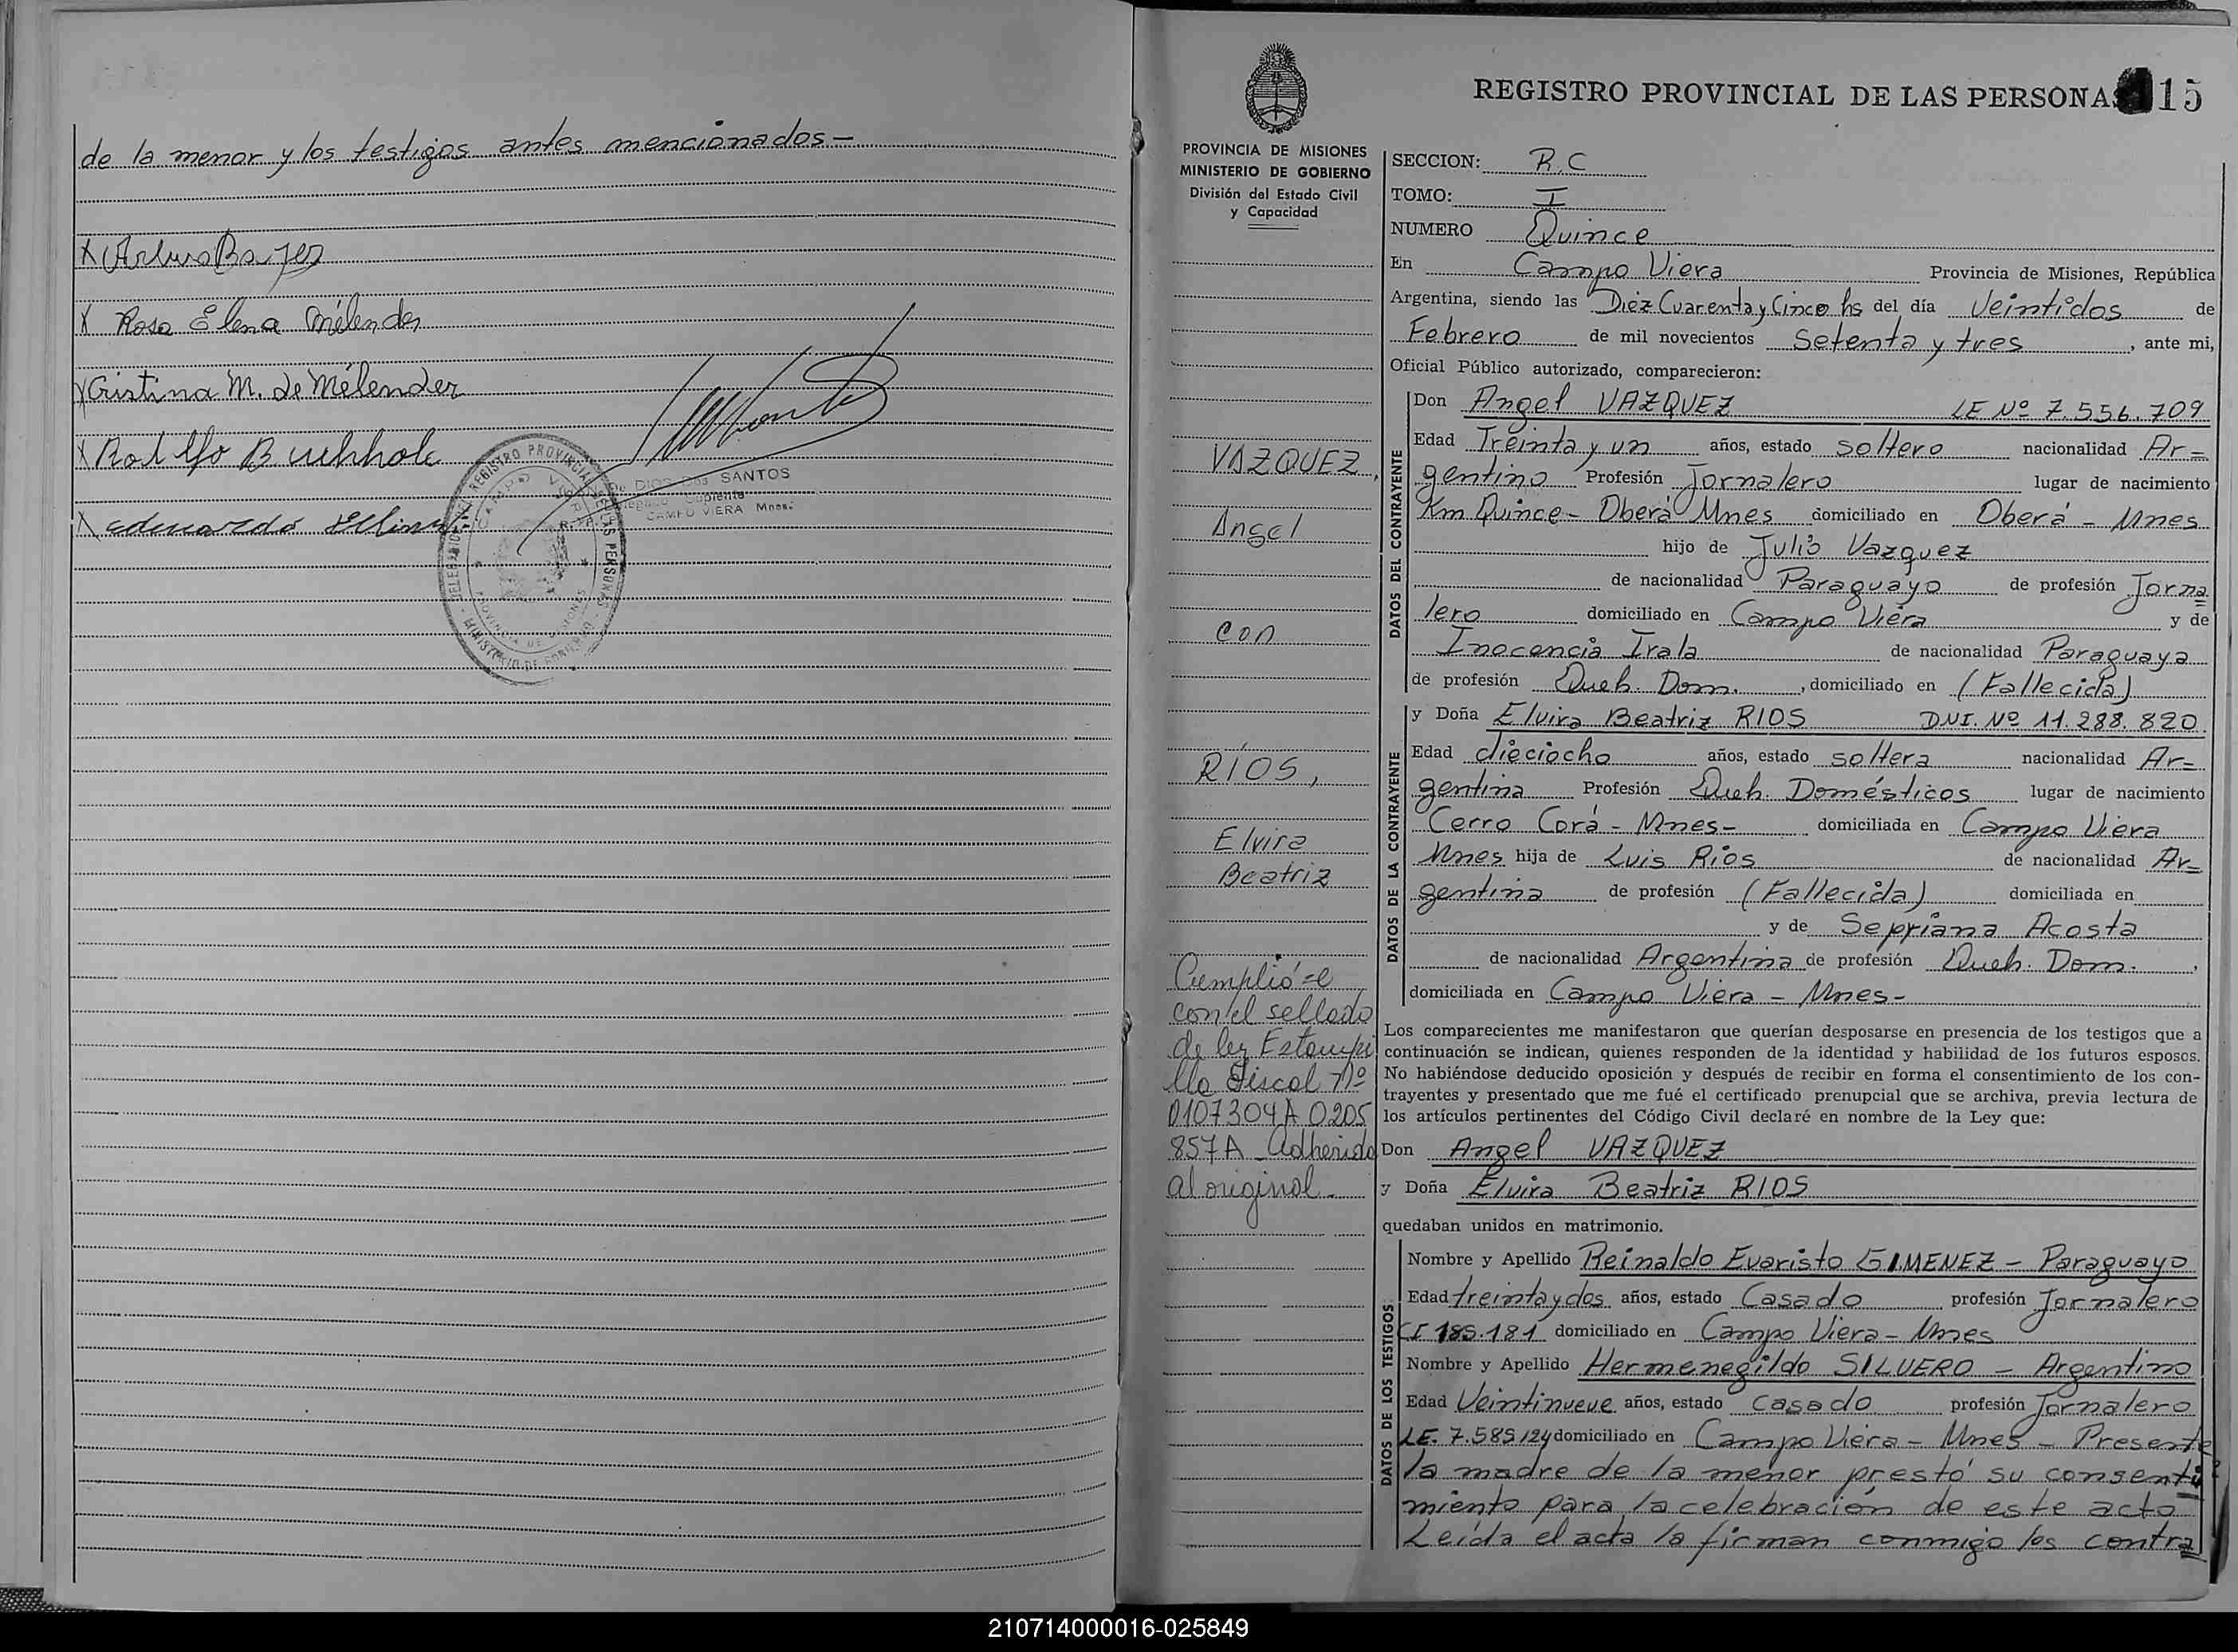 de la menor y los testigos antes mencionados —
X Arturo Bayer
X Rosa Elena Mélender
X Cristina M. de Mélender
X Rodolfo Buchholc
X eduuardo
DIOS Dos SANTOS
Suplente
CAMPO VIERA Mnes.
REGISTRO PROVINCIAL DE LAS PERSONAS
CAMPO VIERA
PROVINCIA DE MISIONES
MINISTERIO DE GOBIERNO
REGISTRO PROVINCIAL DE LAS PERSONAS 15
PROVINCIA DE MISIONES
MINISTERIO DE GOBIERNO
División del Estado Civil
y Capacidad
VAZQUEZ,
Angel
con
RIOS,
Elvira
Beatriz
Cumplió=e
con el sellado
de ley Estampi
lla Fiscal Nº
0107304A 0205
857A - Adherido
al original -
SECCION: R.C
TOMO: I
NUMERO Quince
En Campo Viera Provincia de Misiones, República
Argentina, siendo las Diez Cuarenta y Cinco hs del día Veintidos de
Febrero de mil novecientos Setenta y tres, ante mi,
Oficial Público autorizado, comparecieron:
DATOS DEL CONTRAYENTE
Don Angel VAZQUEZ LE Nº 7.556.709
Edad Treinta y un años, estado soltero nacionalidad Ar=
gentino Profesión Jornalero lugar de nacimiento
Km Quince - Oberá Mnes domiciliado en Oberá - Mnes
hijo de Julio Vazquez
de nacionalidad Paraguayo de profesión Jorna
lero domiciliado en Campo Viera y de
Inocencia Irala de nacionalidad Paraguaya
de profesión Queh. Dom., domiciliado en (Fallecida)
DATOS DE LA CONTRAYENTE
y Doña Elvira Beatriz RIOS DNI. Nº 11.288.820
Edad dieciocho años, estado soltera nacionalidad Ar=
gentina Profesión Queh. Domésticos lugar de nacimiento
Cerro Corá - Mnes- domiciliada en Campo Viera
Mnes hija de Luis Rios de nacionalidad Ar=
gentina de profesión (Fallecida) domiciliada en
y de Sepriana Acosta
de nacionalidad Argentina de profesión Queh. Dom.,
domiciliada en Campo Viera - Mnes-
Los comparecientes me manifestaron que querían desposarse en presencia de los testigos que a
continuación se indican, quienes responden de la identidad y habilidad de los futuros esposos.
No habiéndose deducido oposición y después de recibir en forma el consentimiento de los con-
trayentes y presentado que me fué el certificado prenupcial que se archiva, previa lectura de
los artículos pertinentes del Código Civil declaré en nombre de la Ley que:
Don Angel VAZQUEZ
y Doña Elvira Beatriz RIOS
quedaban unidos en matrimonio.
DATOS DE LOS TESTIGOS
Nombre y Apellido Reinaldo Evaristo GIMENEZ - Paraguayo
Edad treinta y dos años, estado Casado profesión Jornalero
CI 185.181 domiciliado en Campo Viera - Mnes
Nombre y Apellido Hermenegildo SILVERO - Argentino
Edad Veintinueve años, estado casado profesión Jornalero
LE. 7.585124 domiciliado en Campo Viera - Mnes - Presente
la madre de la menor prestó su consenti
miento para la celebración de este acto
Leída el acta la firman conmigo los contra
210714000016-025849